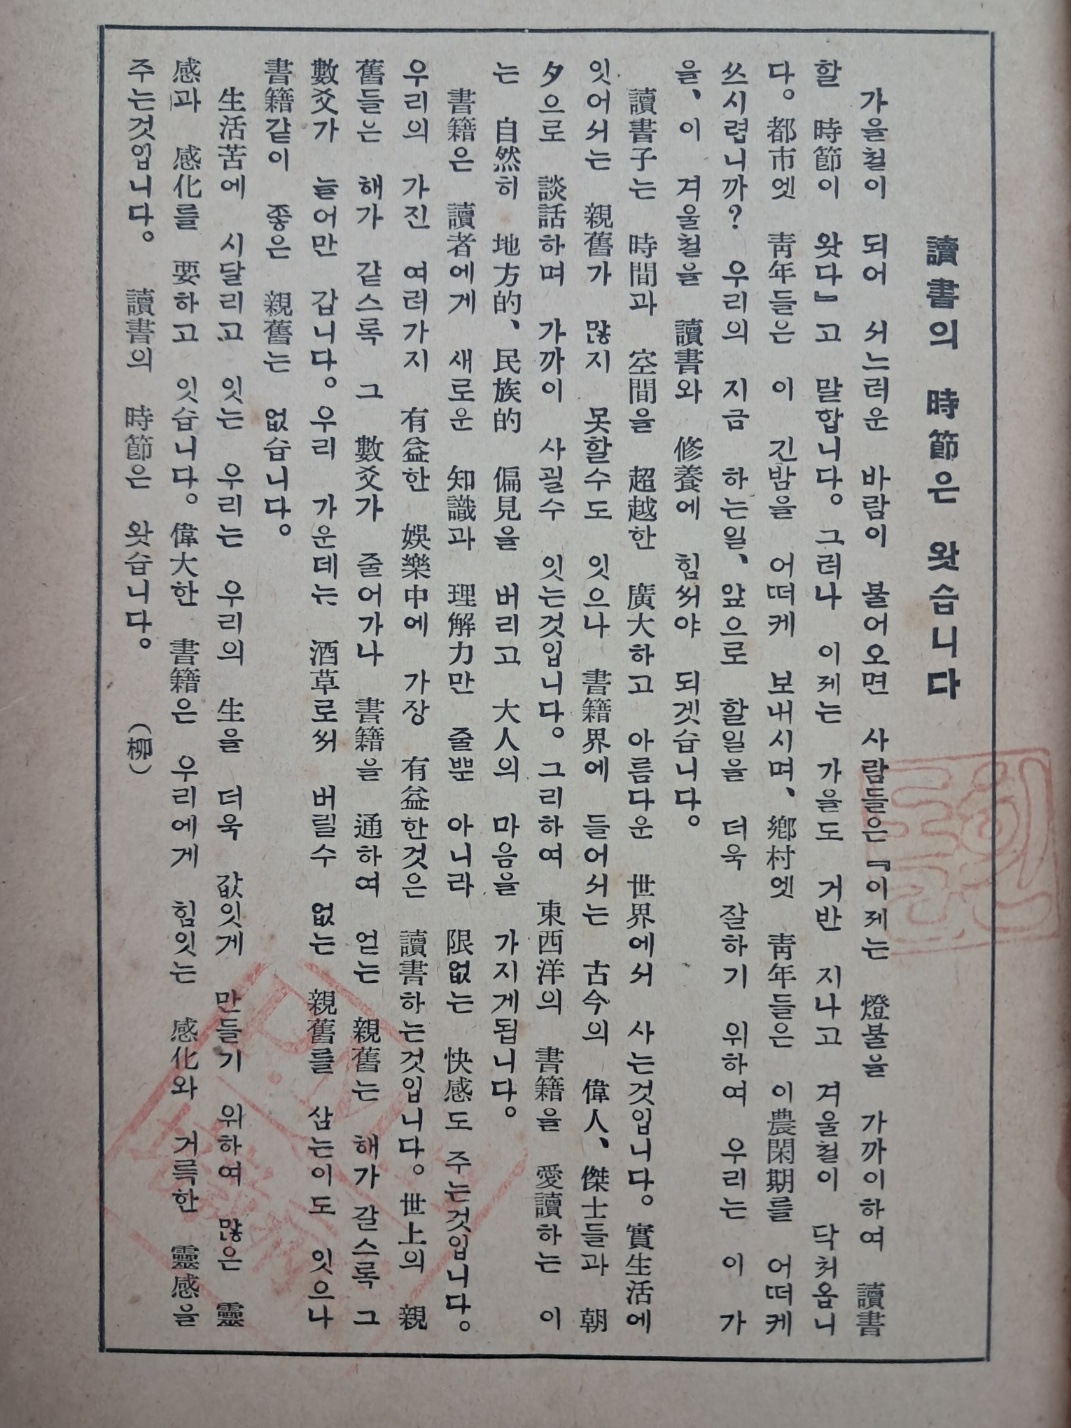 讀書의 時節은 왓습니다
가을철이 되어 서느러운 바람이 불어오면 사람들은 『이제는 燈불을 가까이하여 讀書
할 時節이 왓다』고 말합니다。그러나 이제는 가을도 거반 지나고 겨울철이 닥처옵니
다。都市엣 靑年들은 이 긴밤을 어떠케 보내시며、鄕村엣 靑年들은 이農閑期를 어떠케
쓰시렵니까? 우리의 지금 하는일、앞으로 할일을 더욱 잘하기 위하여 우리는 이 가
을、이 겨울철을 讀書와 修養에 힘써야 되겟습니다。
讀書子는 時間과 空間을 超越한 廣大하고 아름다운 世界에서 사는것입니다。實生活에
잇어서는 親舊가 많지 못할수도 잇으나 書籍界에 들어서는 古今의 偉人、傑士들과 朝
夕으로 談話하며 가까이 사괼수 잇는것입니다。그리하여 東西洋의 書籍을 愛讀하는 이
는 自然히 地方的、民族的 偏見을 버리고 大人의 마음을 가지게됩니다。
書籍은 讀者에게 새로운 知識과 理解力만 줄뿐 아니라 限없는 快感도 주는것입니다。
우리의 가진 여러가지 有益한 娛樂中에 가장 有益한것은 讀書하는것입니다。世上의 親
舊들은 해가 갈스록 그 數爻가 줄어가나 書籍을 通하여 얻는 親舊는 해가 갈스록 그
數爻가 늘어만 갑니다。우리 가운데는 酒草로써 버릴수 없는 親舊를 삼는이도 잇으나
書籍같이 좋은 親舊는 없습니다。
生活苦에 시달리고 잇는 우리는 우리의 生을 더욱 값잇게 만들기 위하여 많은 靈
感과 感化를 要하고 잇습니다。偉大한 書籍은 우리에게 힘잇는 感化와 거륵한 靈感을
주는것입니다。 讀書의 時節은 왓습니다。 (柳)